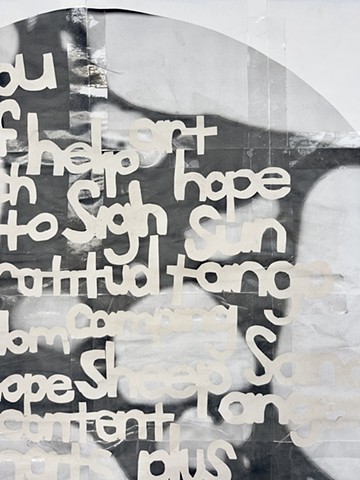 ou
f help art
h hope
to Sigh Sun
ratitud tango
dom camping
ope Sheep So
content Tango
arts plus